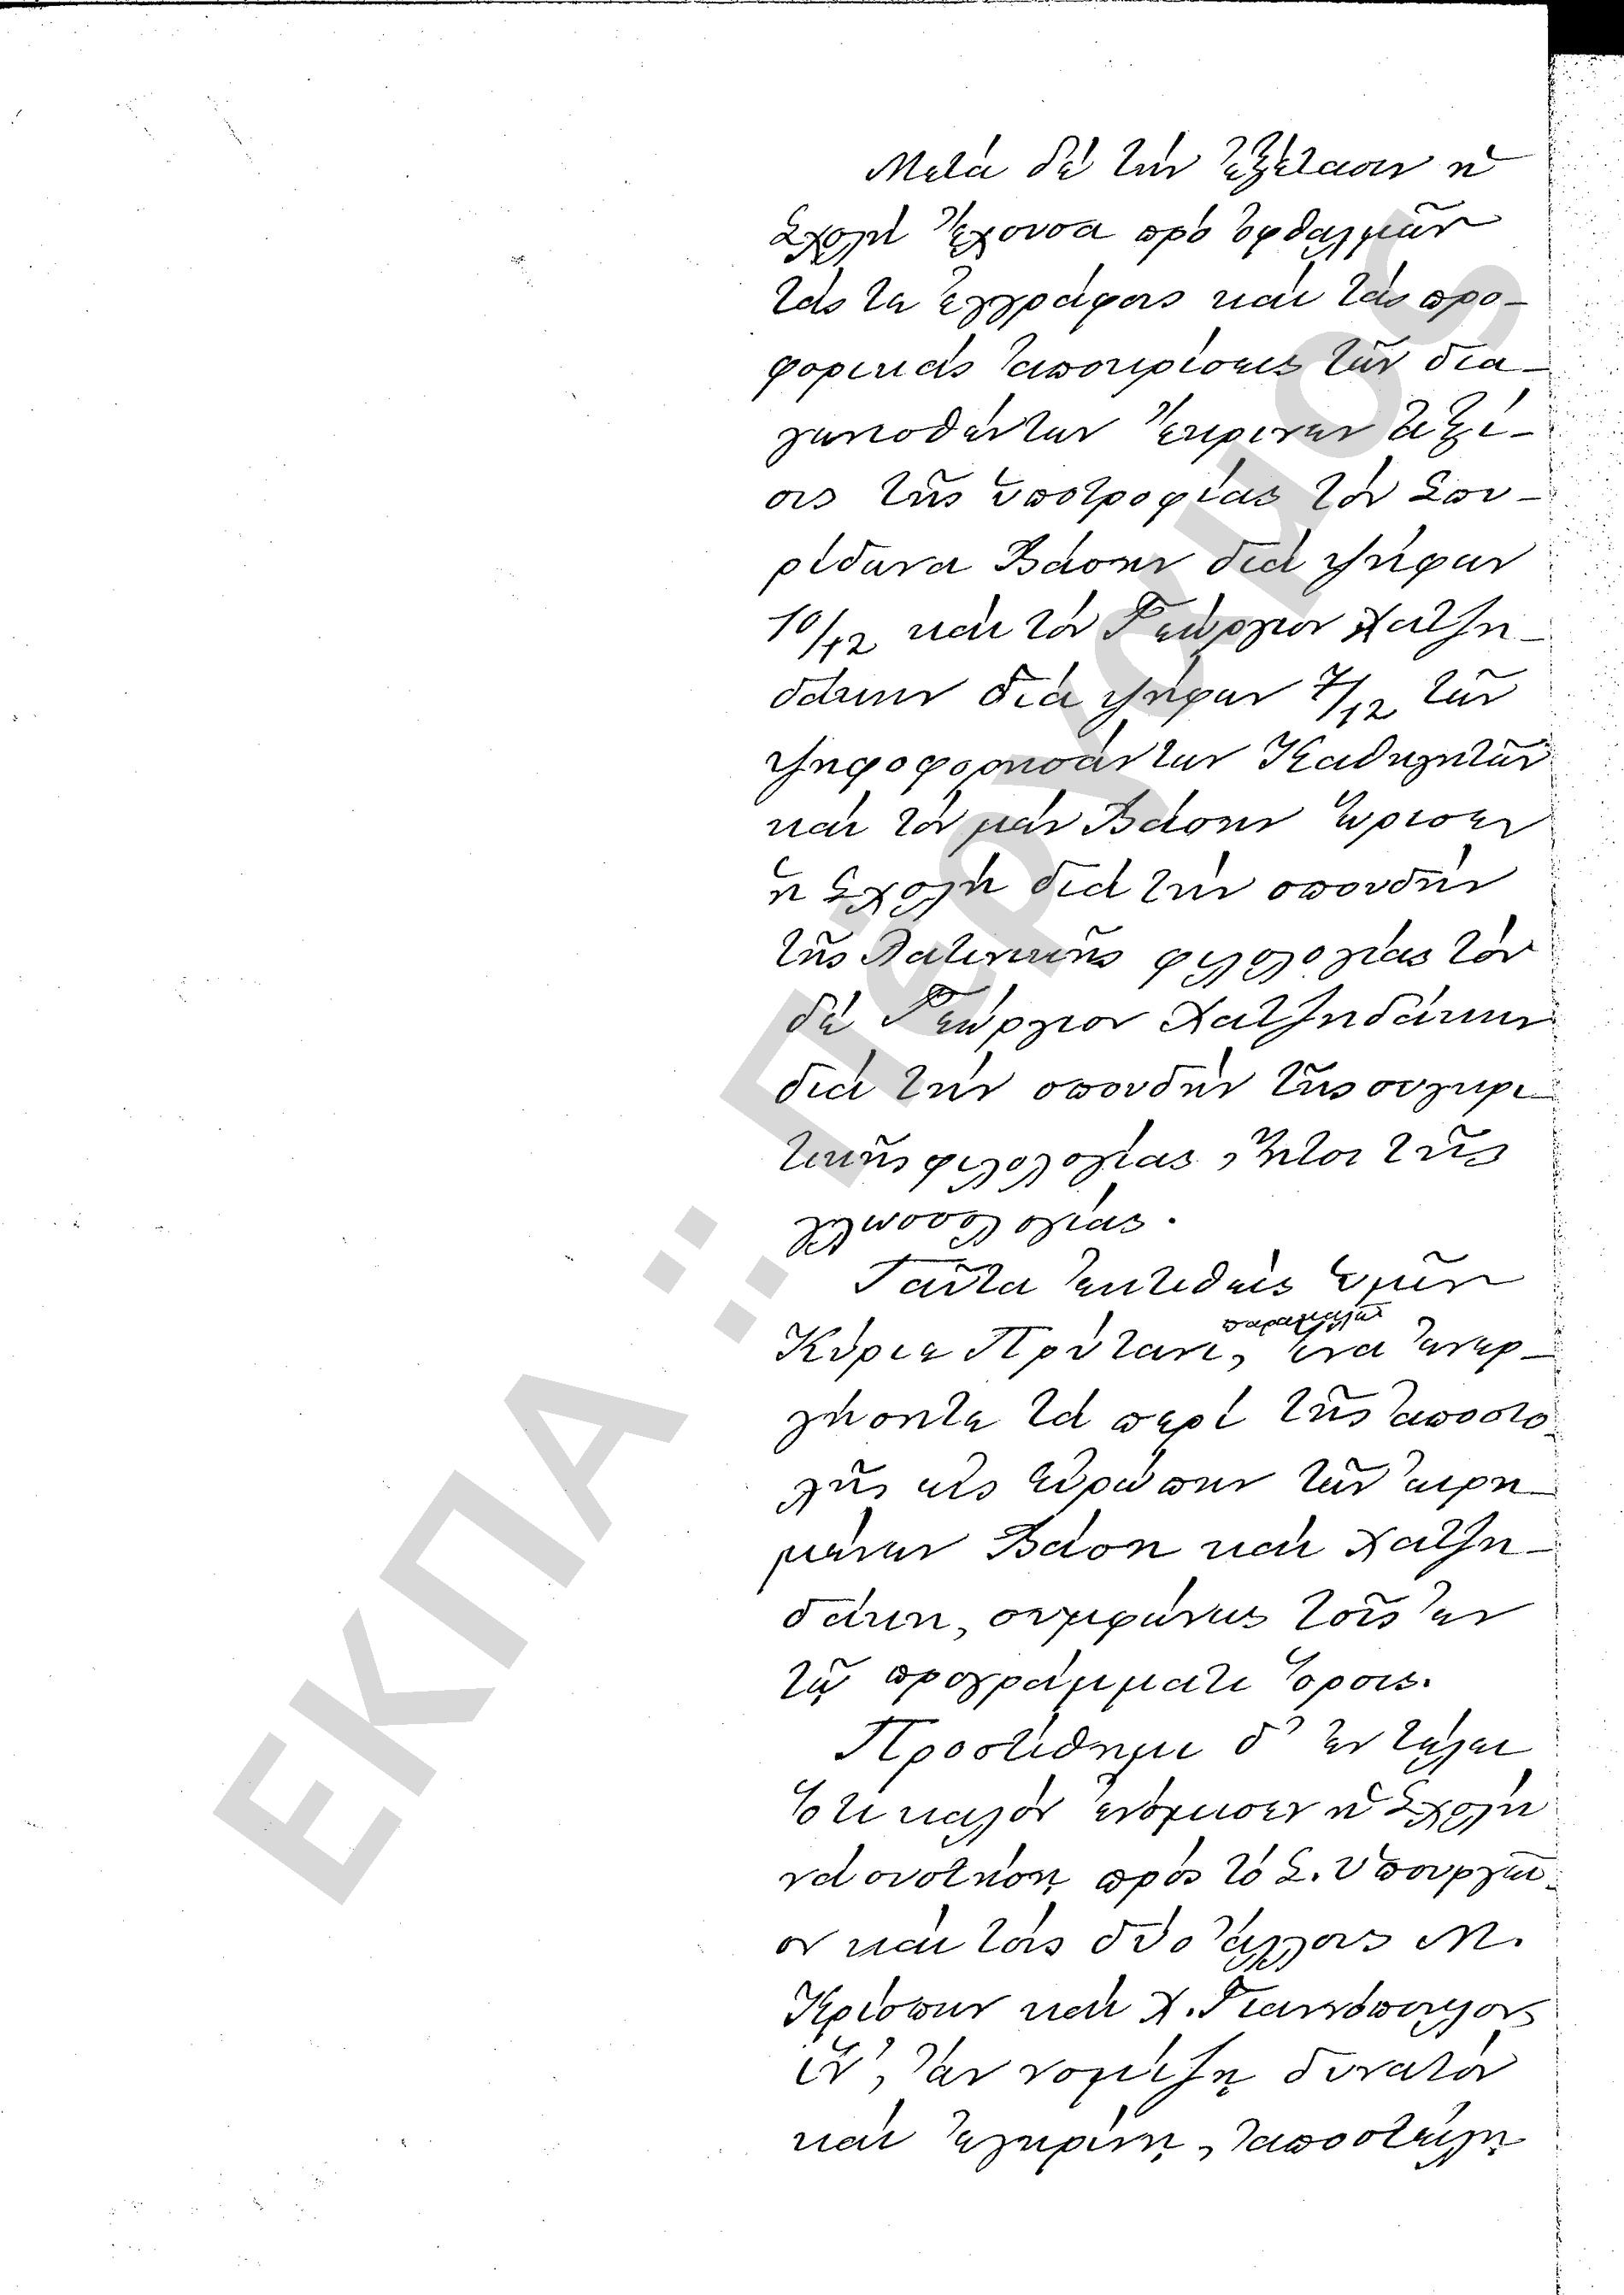 Μετὰ δὲ τὴν ἐξέτασιν ἡ
Σχολὴ ἔχουσα πρὸ ὀφθαλμῶν
τάς τε ἐγγράφους καὶ τὰς προ-
φορικὰς ἀποκρίσεις τῶν δια-
γωνισθέντων ἔκρινεν ἀξί-
ους τῆς ὑποτροφίας τὸν Σπυ-
ρίδωνα Βάσην διὰ ψήφων
10/12 καὶ τὸν Γεώργιον Χατζη-
δάκην διὰ ψήφων 7/12 τῶν
ψηφοφορησάντων Καθηγητῶν
καὶ τὸν μὲν Βάσην ὥρισεν
ἡ Σχολὴ διὰ τὴν σπουδὴν
τῆς Λατινικῆς φιλολογίας τὸν
δὲ Γεώργιον Χατζηδάκην
διὰ τὴν σπουδὴν τῆς συγκρι-
τικῆς φιλολογίας, ἤτοι τῆς
γλωσσολογίας.
Ταῦτα ἐκτιθεὶς ὑμῖν
παρακαλῶ
Κύριε Πρύτανι, ἵνα ἐνερ-
γήσητε τὰ περὶ τῆς ἀποστο-
λῆς εἰς Εὐρώπην τῶν εἰρη-
μένων Βάση καὶ Χατζη-
δάκη, συμφώνως τοῖς ἐν
τῷ προγράμματι ὅροις.
Προστίθημι δ' ἐν τέλει
ὅτι καλὸν ἐνόμισεν ἡ Σχολὴ
νὰ συστήσῃ πρὸς τὸ Σ. Ὑπουργεῖ-
ον καὶ τοὺς δύο ἄλλους Μ.
Κρίσπην καὶ Χ. Γιαννόπουλον
ἵν', ἂν νομίζῃ δυνατὸν
καὶ ἐγκρίνῃ, ἀποστείλῃ
ΕΚΠΑ :: Πέργαμος